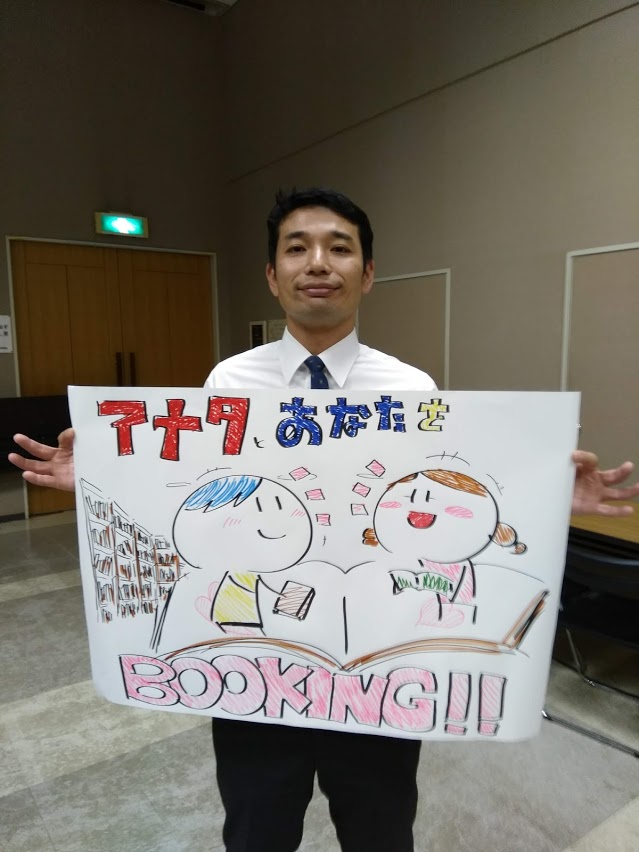 アナタとあなたを
BOOKING!!